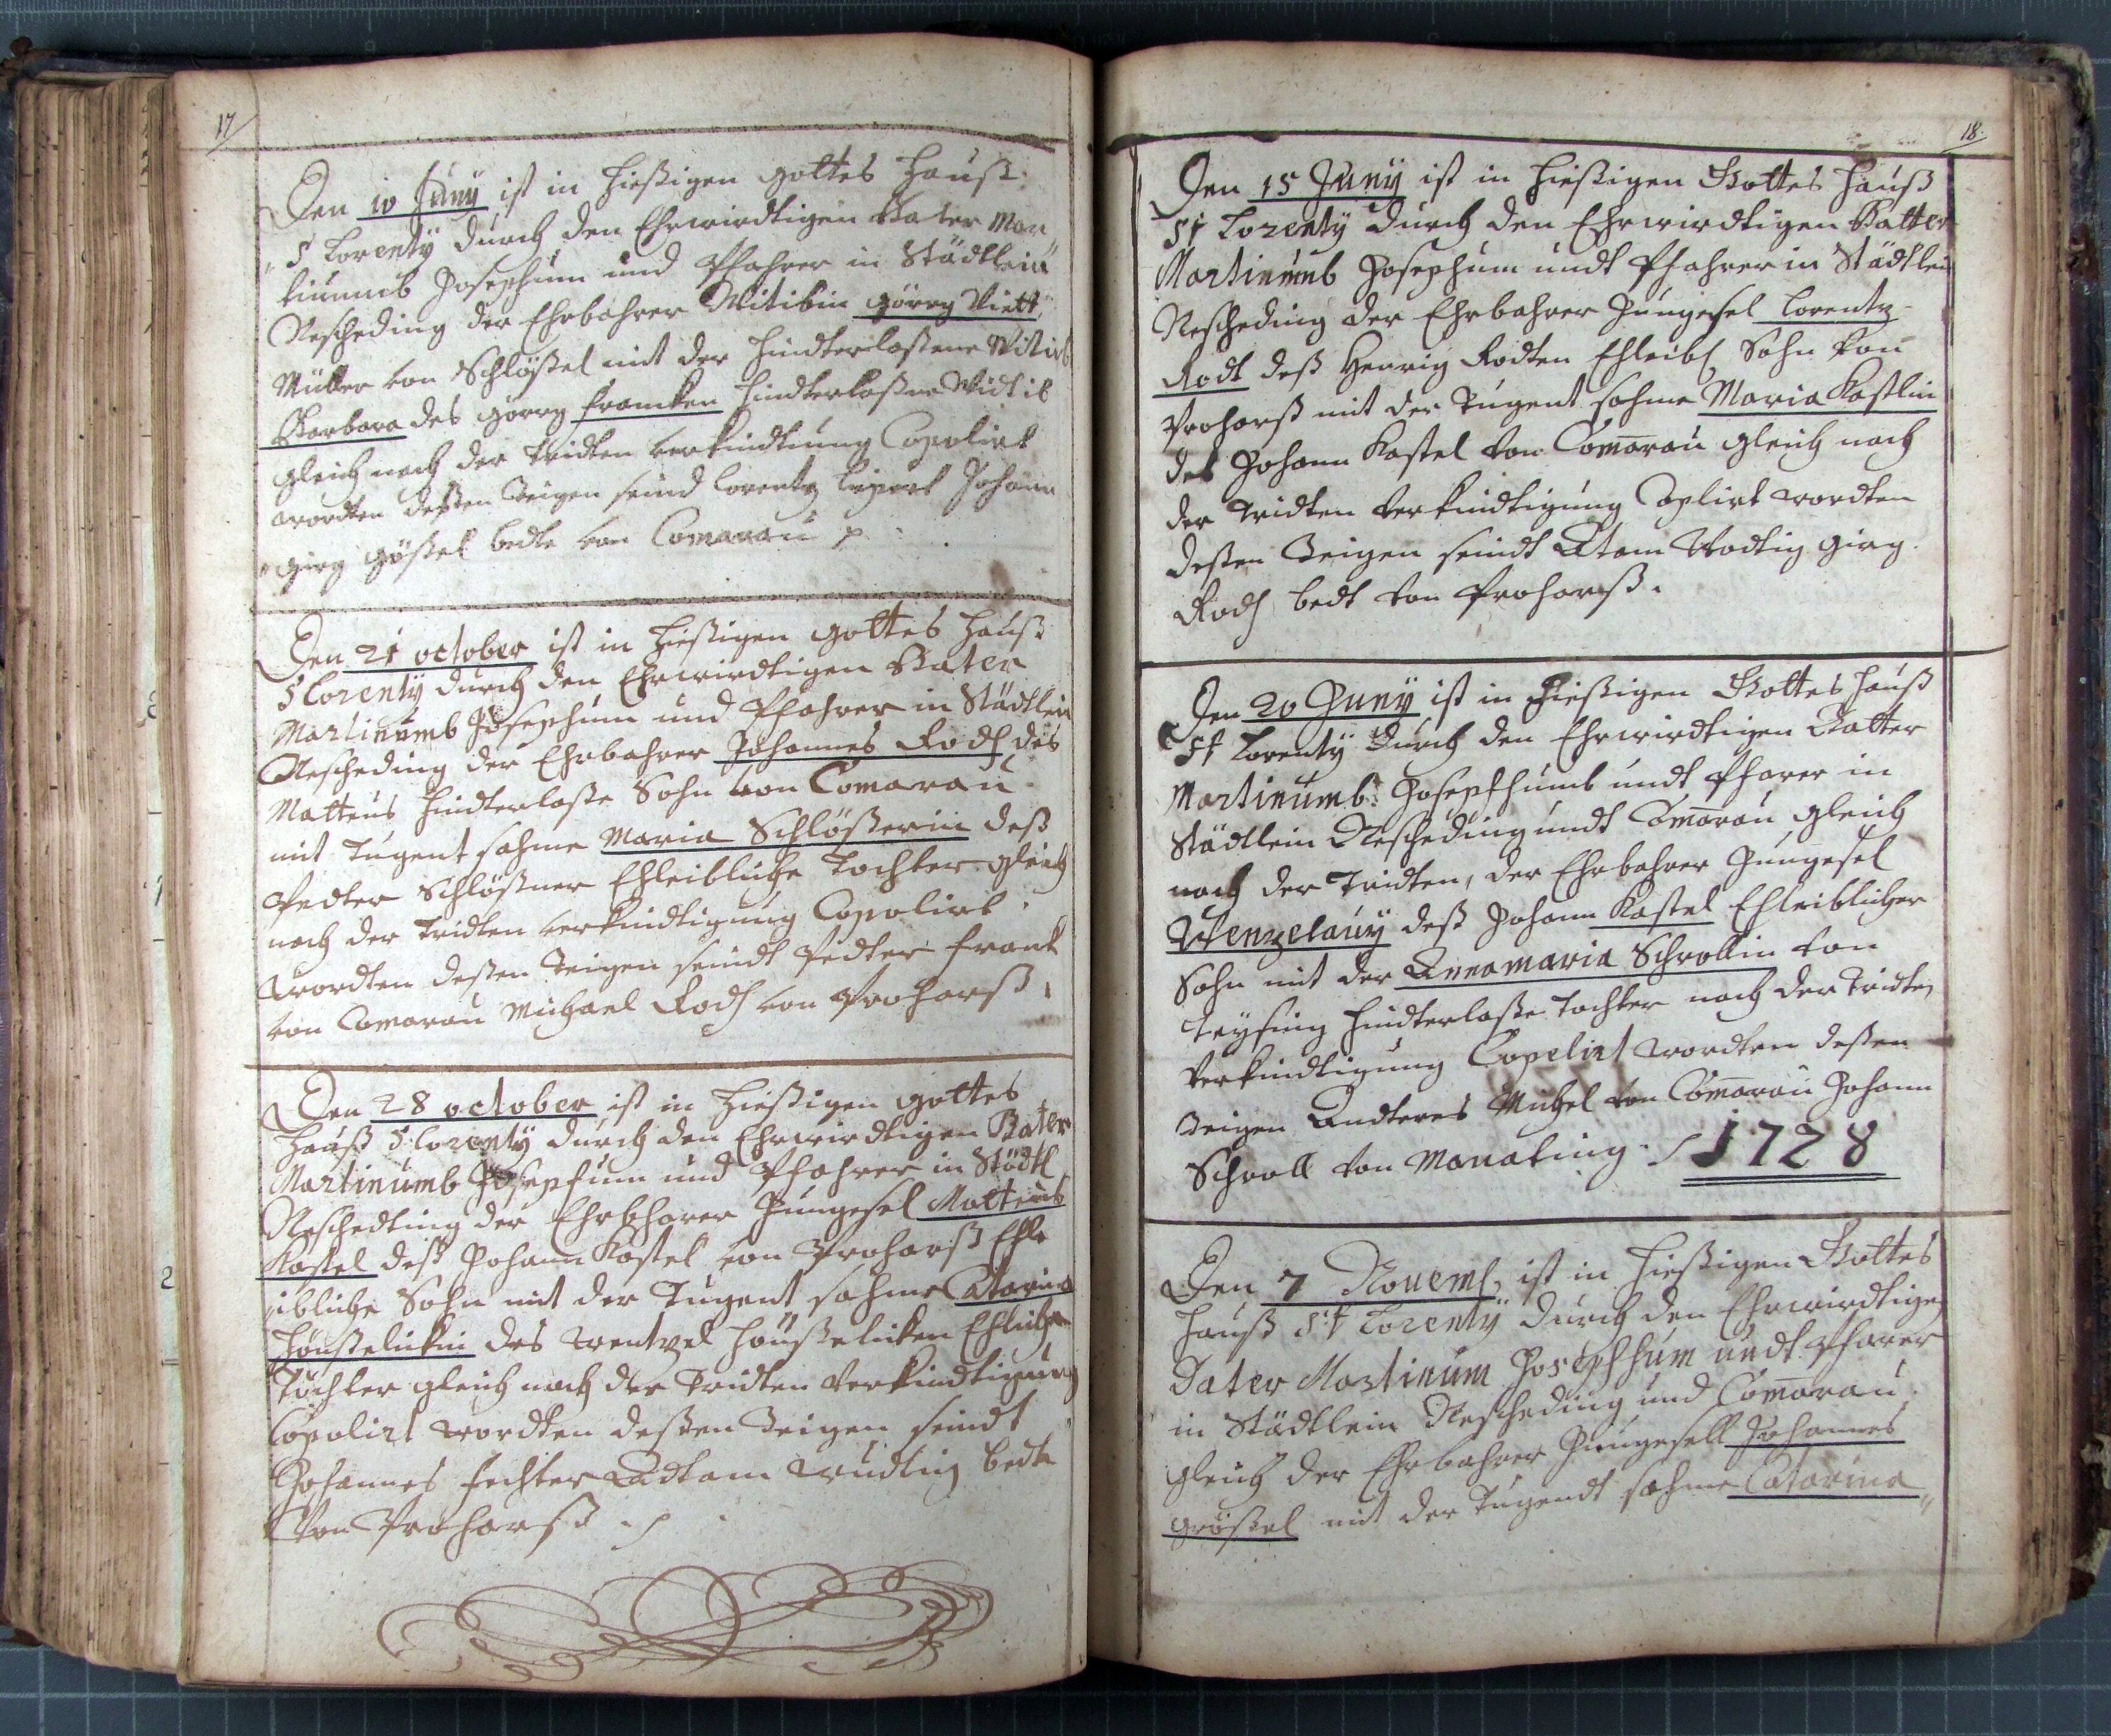 17
Den 10 Juny ist in hießigen gottes Hauß
S Lorentÿ durch den Ehrwirdtigen Pater Mar
tinumb Josephum und Pfahrer in Städtlein
Nescheding der Ehrbahrer Witibin görrg Viett
Müller von Schlößel mit der hindterlaßene Witib
Barbara des görrg francken hindterlaßne Widtib
gleich nach der tridten verkindtiung Copolirt
wordten deßen Zeigen seind Lorentz Johann
girg gößel bedte von Comarau
Den 21 october ist in hießigen gottes Hauß
S Lorentÿ durch den Ehrwirdtigen Pater
Martinumb Josephum und Pfahrer in Städtlein
Nescheding der Ehrbahrer Johannes Rodh des
Matteus hindterlaße Sohn von Comarau
mit Tugent sahme Maria Schlößerin deß
Pedter Schlößner Ehleibliche Tochter gleich
nach der tridten verkindtigung Copolirt
wordten deßen Zeigen seindt Pedter frank
von Comarau Michael Rodh von Proharß
Den 28 october ist in hießigen gottes
Hauß S Lorentÿ durch den Ehrwirdtigen Pater
Martinumb Josephum und Pfahrer in Städtl
Neschedting der Ehrbharer Jungesel Matteus
Kastel deß Johann Kastel von Proharß Ehle
ibliche Sohn mit der Tugent sahme Catarina
Haußelickin des Wentzel Haußelicken Ehliche
Tochter gleich nach der Tridten Verkindtigung
Copolirt wordten deßen Zeigen seindt
Johannes fechter Adtam Wudtig bedte
Von Proharß
18
Den 15 Juny ist in hießigen Gottes Hauß
St Lorentÿ durch den Ehrwirdtigen Patter
Martinumb Josephum undt Pfahrer in Städtlein
Nescheding der Ehrbahrer Jungesel Lorentz
Rodt deß Henrig Rodten Ehleibl Sohn von
Proharß mit der Tugent sahme Maria Kastlin
des Johann Kastel von Comarau gleich nach
der tridten Verkindtigung Coplirt wordten
deßen Zeigen seindt Atam Wodtig girg
Rodh bedt von Proharß.
Den 20 Juny ist in hießigen Gottes Hauß
St Lorentÿ durch den Ehrwirdtigen Patter
Martinumb Josepfhumb undt Pfarer in
Städtlein Nescheding undt Comarau gleich
nach der Tridten, der Ehrbahrer Jungesel
Wenzelauy deß Johann Kastel Ehleiblicher
Sohn mit der Annamaria Schrollin von
Teysing hindterlaße Tochter nach der Tridten
Verkindtigung Copelirt wordten deßen
Zeigen Andteres Michel von Comarau Johann
Schroll von Manating 1728
Den 7 Noueml ist in hießigen Gottes
Hauß St Lorentÿ durch den Ehrwirdtigen
Pater Martinum Josephhum undt Pfarer
in Städtlein Nescheding und Comarau
gleich der Ehrbahrer Jungesell Johannes
größel mit der Tugendt sahme Catarina